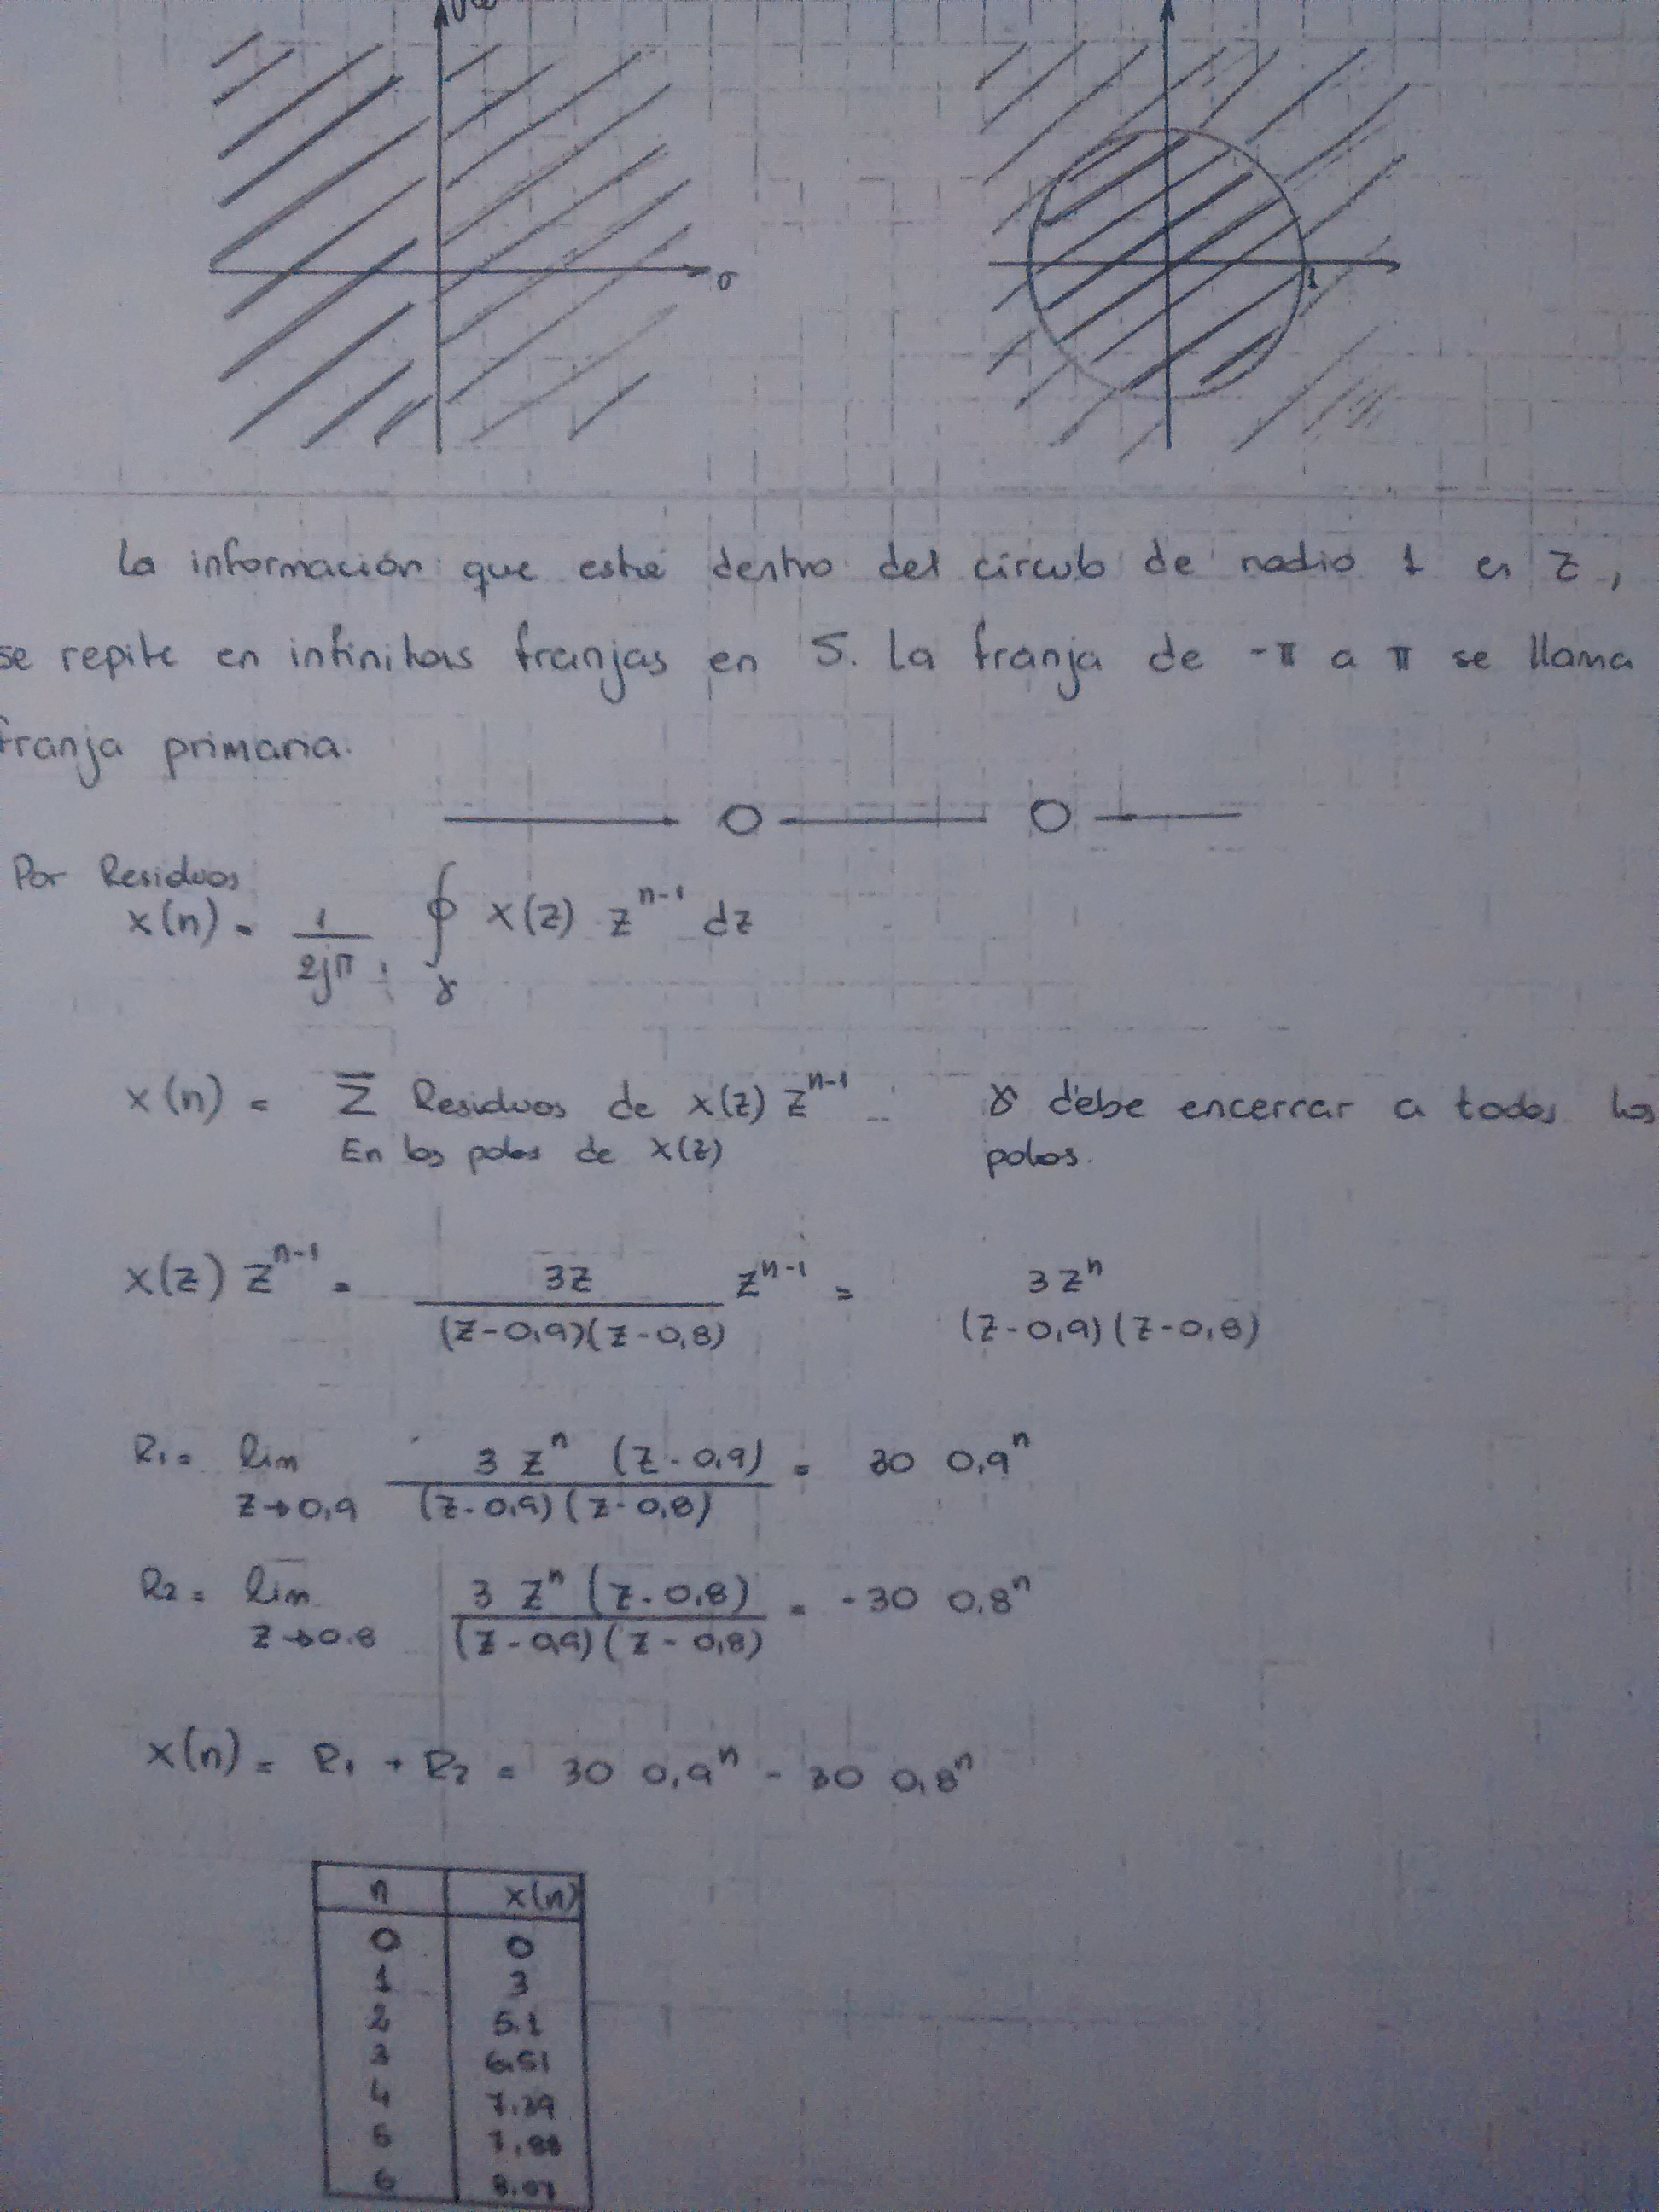 jω
σ
1
La información que esté dentro del círculo de radio 1 en Z,
se repite en infinitas franjas en S. La franja de -π a π se llama
franja primaria.
Por Residuos
x(n) = 1/2jπ ∮γ X(z) z^n-1 dz
x(n) = Σ Residuos de X(z) z^n-1 γ debe encerrar a todos los
En los polos de X(z) polos.
X(z) z^n-1 = 3z/(z-0,9)(z-0,8) z^n-1 = 3z^n/(z-0,9)(z-0,8)
R1 = lim z→0,9 3 z^n (z-0,9)/(z-0,9)(z-0,8) = 30 0,9^n
R2 = lim z→0.8 3 z^n (z-0,8)/(z-0,9)(z-0,8) = -30 0,8^n
x(n) = R1 + R2 = 30 0,9^n - 30 0,8^n
n x(n)
0 0
1 3
2 5.1
3 6.51
4 7.39
5 7.88
6